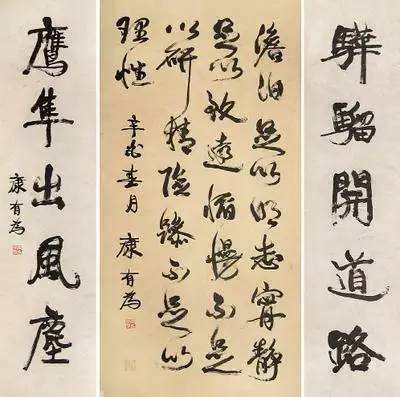 驊騮開道路
澹泊足以明志寧靜
足以致遠慆慢不足
以研精險躁不足以
理性
辛亥春月 康有為
鷹隼出風塵
康有為